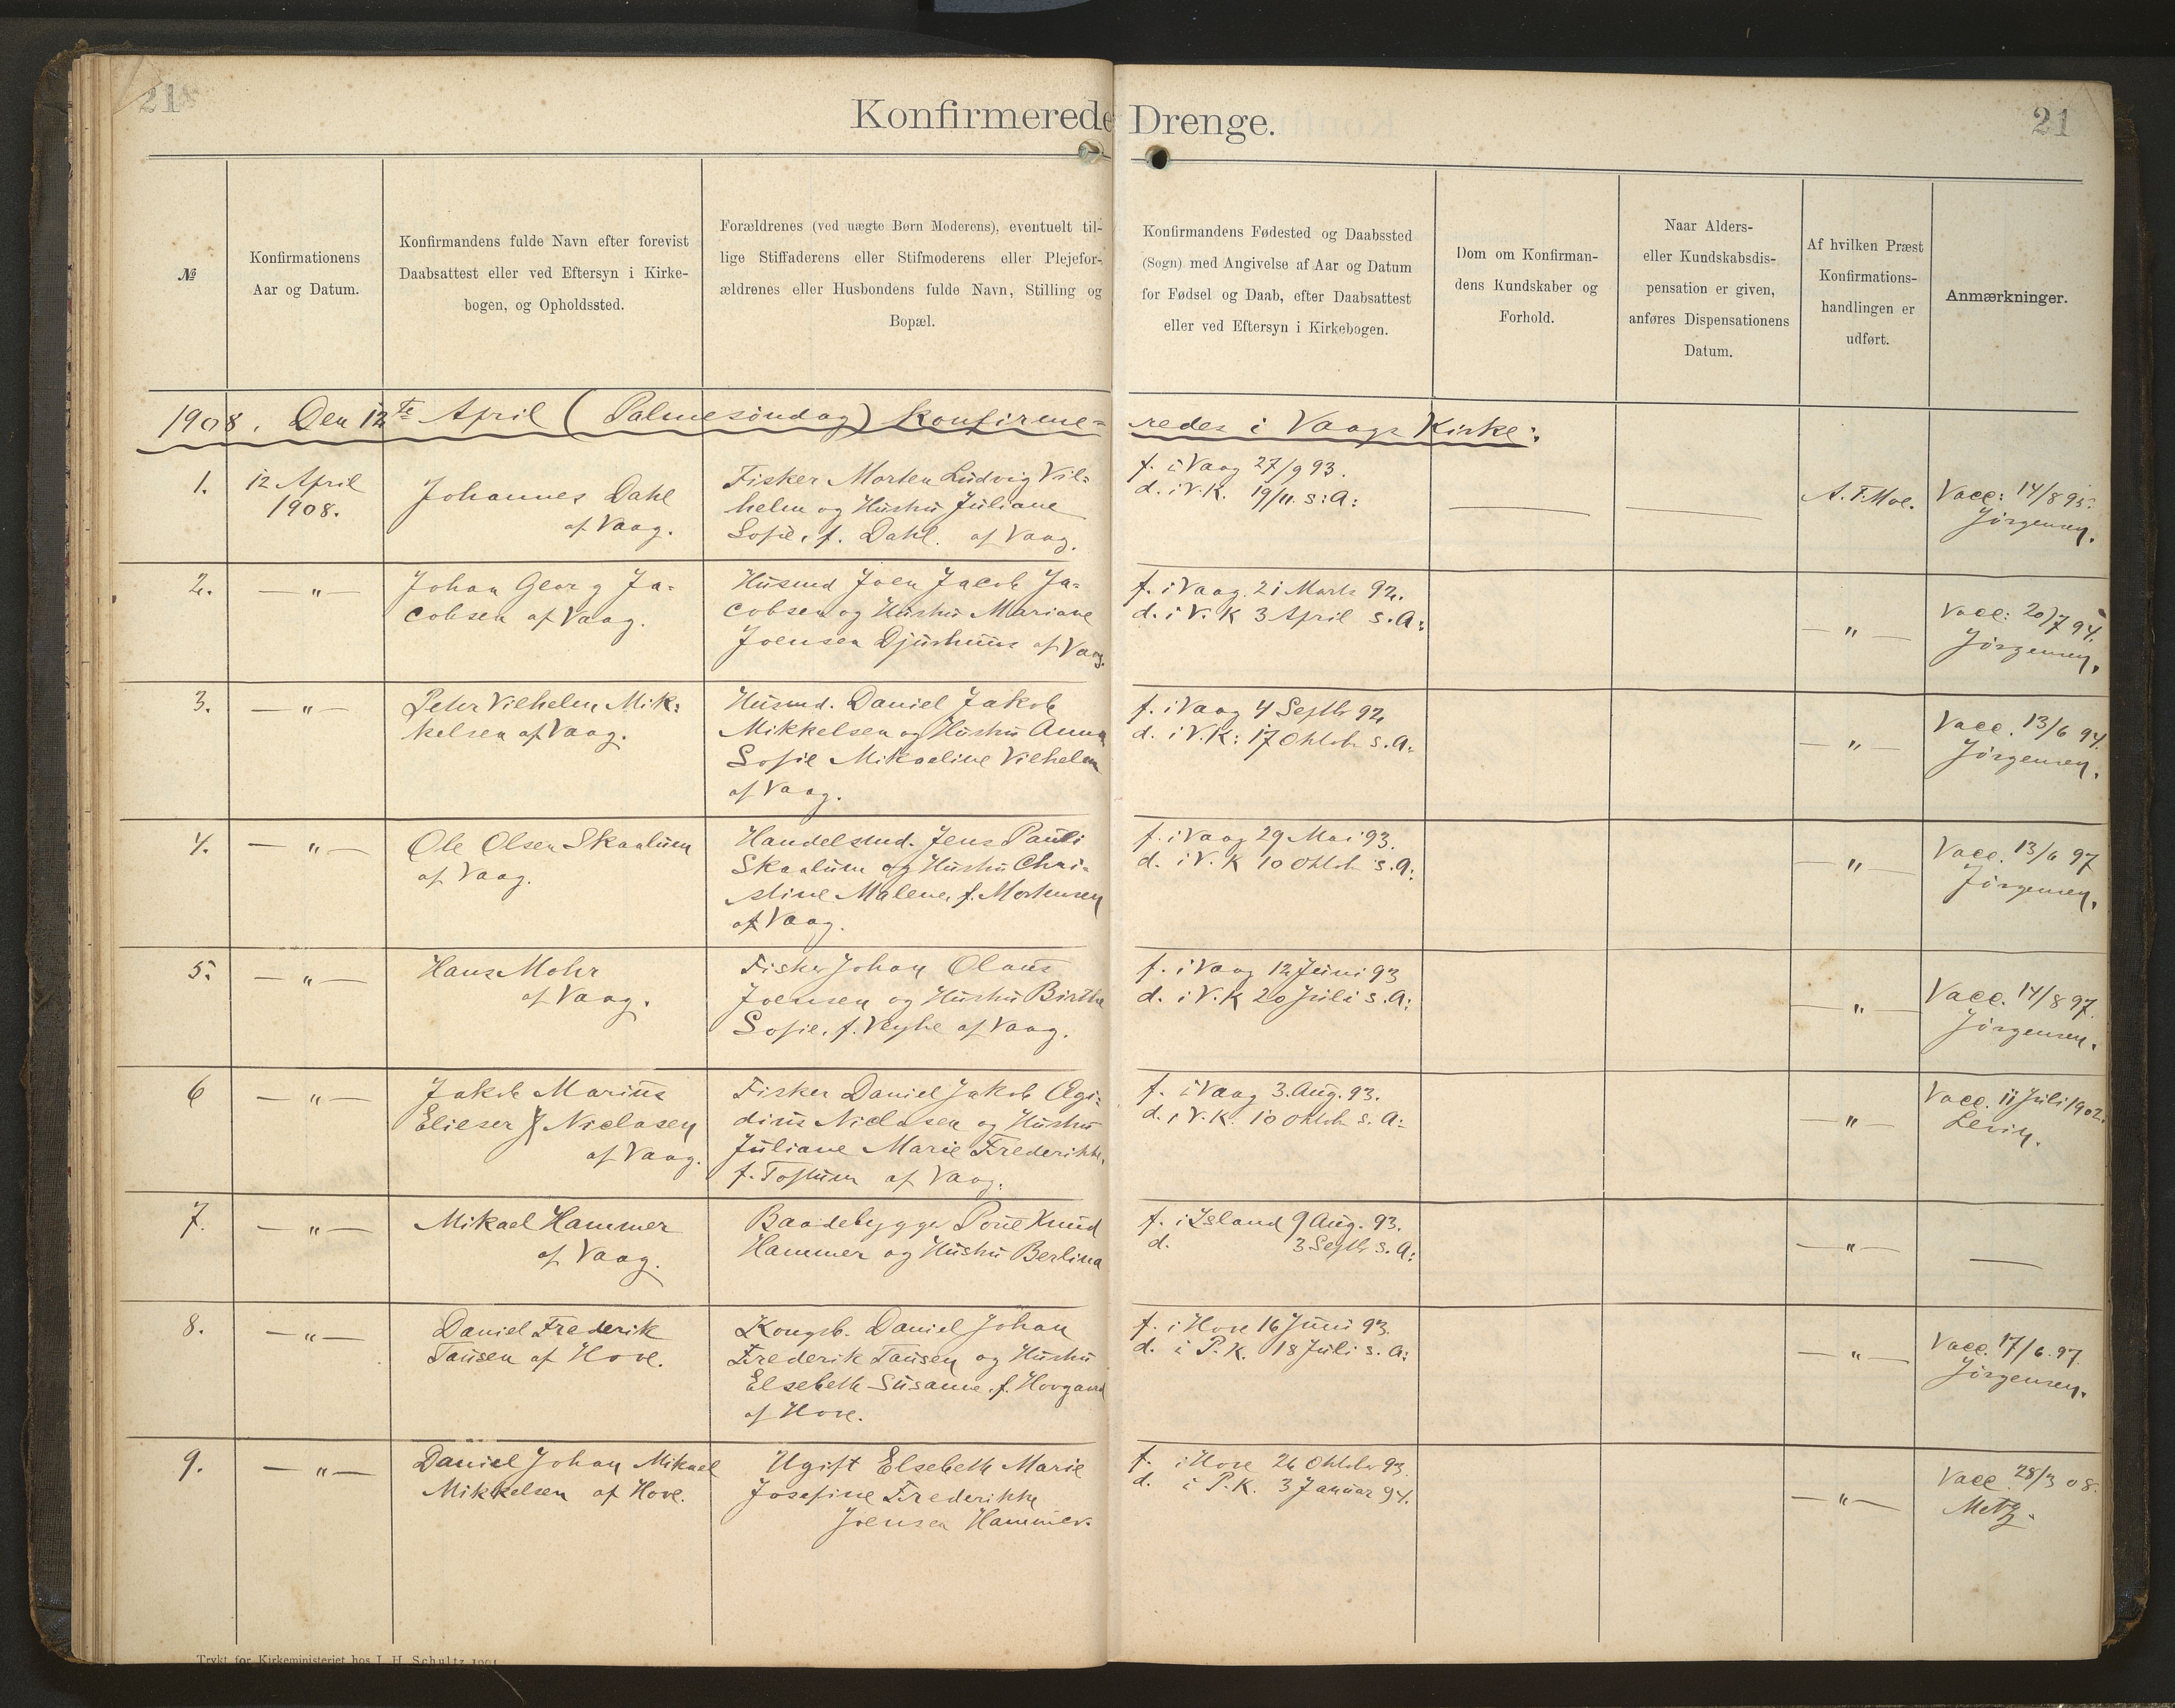 21
Konfirmerede Drenge.
21
№
Konfirmationens
Aar og Datum.
Konfirmandens fulde Navn efter forevist
Daabsattest eller ved Eftersyn i Kirke-
bogen, og Opholdssted.
Forældrenes (ved uægte Børn Moderens), eventuelt til-
lige Stiffaderens eller Stifmoderens eller Plejefor-
ældrenes eller Husbondens fulde Navn, Stilling og
Bopæl.
Konfirmandens Fødested og Daabssted
(Sogn) med Angivelse af Aar og Datum
for Fødsel og Daab, efter Daabsattest
eller ved Eftersyn i Kirkebogen.
Dom om Konfirman-
dens Kundskaber og
Forhold.
Naar Alders-
eller Kundskabsdis-
pensation er given,
anføres Dispensationens
Datum.
Af hvilken Præst
Konfirmations-
handlingen er
udført.
Anmærkninger.
1908. Den 12te April (Palmesöndag) Konfirme= redes i Vaags Kirke:
1.
12 April
1908.
Johannes Dahl
af Vaag.
Fisker Morten Ludvig Vil=
helm og Hustru Juliane
Sofie, f. Dahl. af Vaag.
f. i Vaag 27/9 93.
d. i V.K. 19/11. s:A:
A. F. Moe.
Vacc: 14/8 95.
Jörgensen.
2.
— " —
Johan Georg Ja=
cobsen af Vaag.
Husmd Joen Jacob Ja=
cobsen og Hustru Mariane
Joensen Djushuus af Vaag.
f. i Vaag. 21 Marts 92.
d. i V. K 3 April s.A:
— " —
Vacc: 20/7 94.
Jörgensen.
3.
— " —
Peter Vilhelm Mik=
kelsen af Vaag.
Husmd. Daniel Jakob
Mikkelsen og Hustru Anna
Sofie Mikaeline Vilhelm
af Vaag.
f. i Vaag 4 Septbr 92
d. i V.K: 17 Oktobr s.A:
— " —
Vacc. 13/6 94.
Jörgensen.
4.
— " —
Ole Olsen Skaalum
af Vaag.
Handelsmd. Jens Pauli
Skaalum og Hustru Chri-
stine Malene, f. Mortensen
af Vaag.
f. i Vaag 29 Mai 93.
d. i V. K 10 Oktob s.A:
— " —
Vacc. 13/6 97
Jörgensen.
5.
— " —
Hans Mohr
af Vaag.
Fisker Johan Olaus
Joensen og Hustru Birthe
Sofie, f. Veyhe af Vaag.
f. i Vaag 12 Juni 93
d. i V.K 20 Juli s.A:
— " —
Vacc. 14/8 97.
Jörgensen.
6
— " —
Jakob Marius
Elieser Niclasen
af Vaag.
Fisker Daniel Jakob Ægi=
dius Niclasen og Hustru
Juliane Marie Frederikke,
f. Toftum af Vaag.
f. i Vaag 3. Aug. 93.
d. i V.K. 10 Oktobr s.A:
— " —
Vacc. 11 Juli 1902.
Levin.
7.
— " —
Mikael Hammer
af Vaag.
Baadebygger Poul Knud
Hammer og Hustru Berlina
f. i Island 9 Aug. 93.
d. 3 Septbr s.A:
— " —
8.
— " —
Daniel Frederik
Tausen af Hove.
Kongsb. Daniel Johan
Frederik Tausen og Hustru
Elsebeth Susanne, f. Hovgaard
af Hove.
f. i Hove 16 Juni 93.
d. i P. K. 18 Juli s.A:
— " —
Vacc. 17/6. 97.
Jörgensen.
9.
— " —
Daniel Johan Mikael
Mikkelsen af Hove.
Ugift Elsebeth Marie
Josefine Frederikke
Joensen Hammer.
f. i Hove 26 Oktobr 93.
d. i P.K. 3 Januar 94.
— " —
Vacc. 28/3 08.
Metz.
Trykt for Kirkeministeriet hos J. H. Schultz 1901